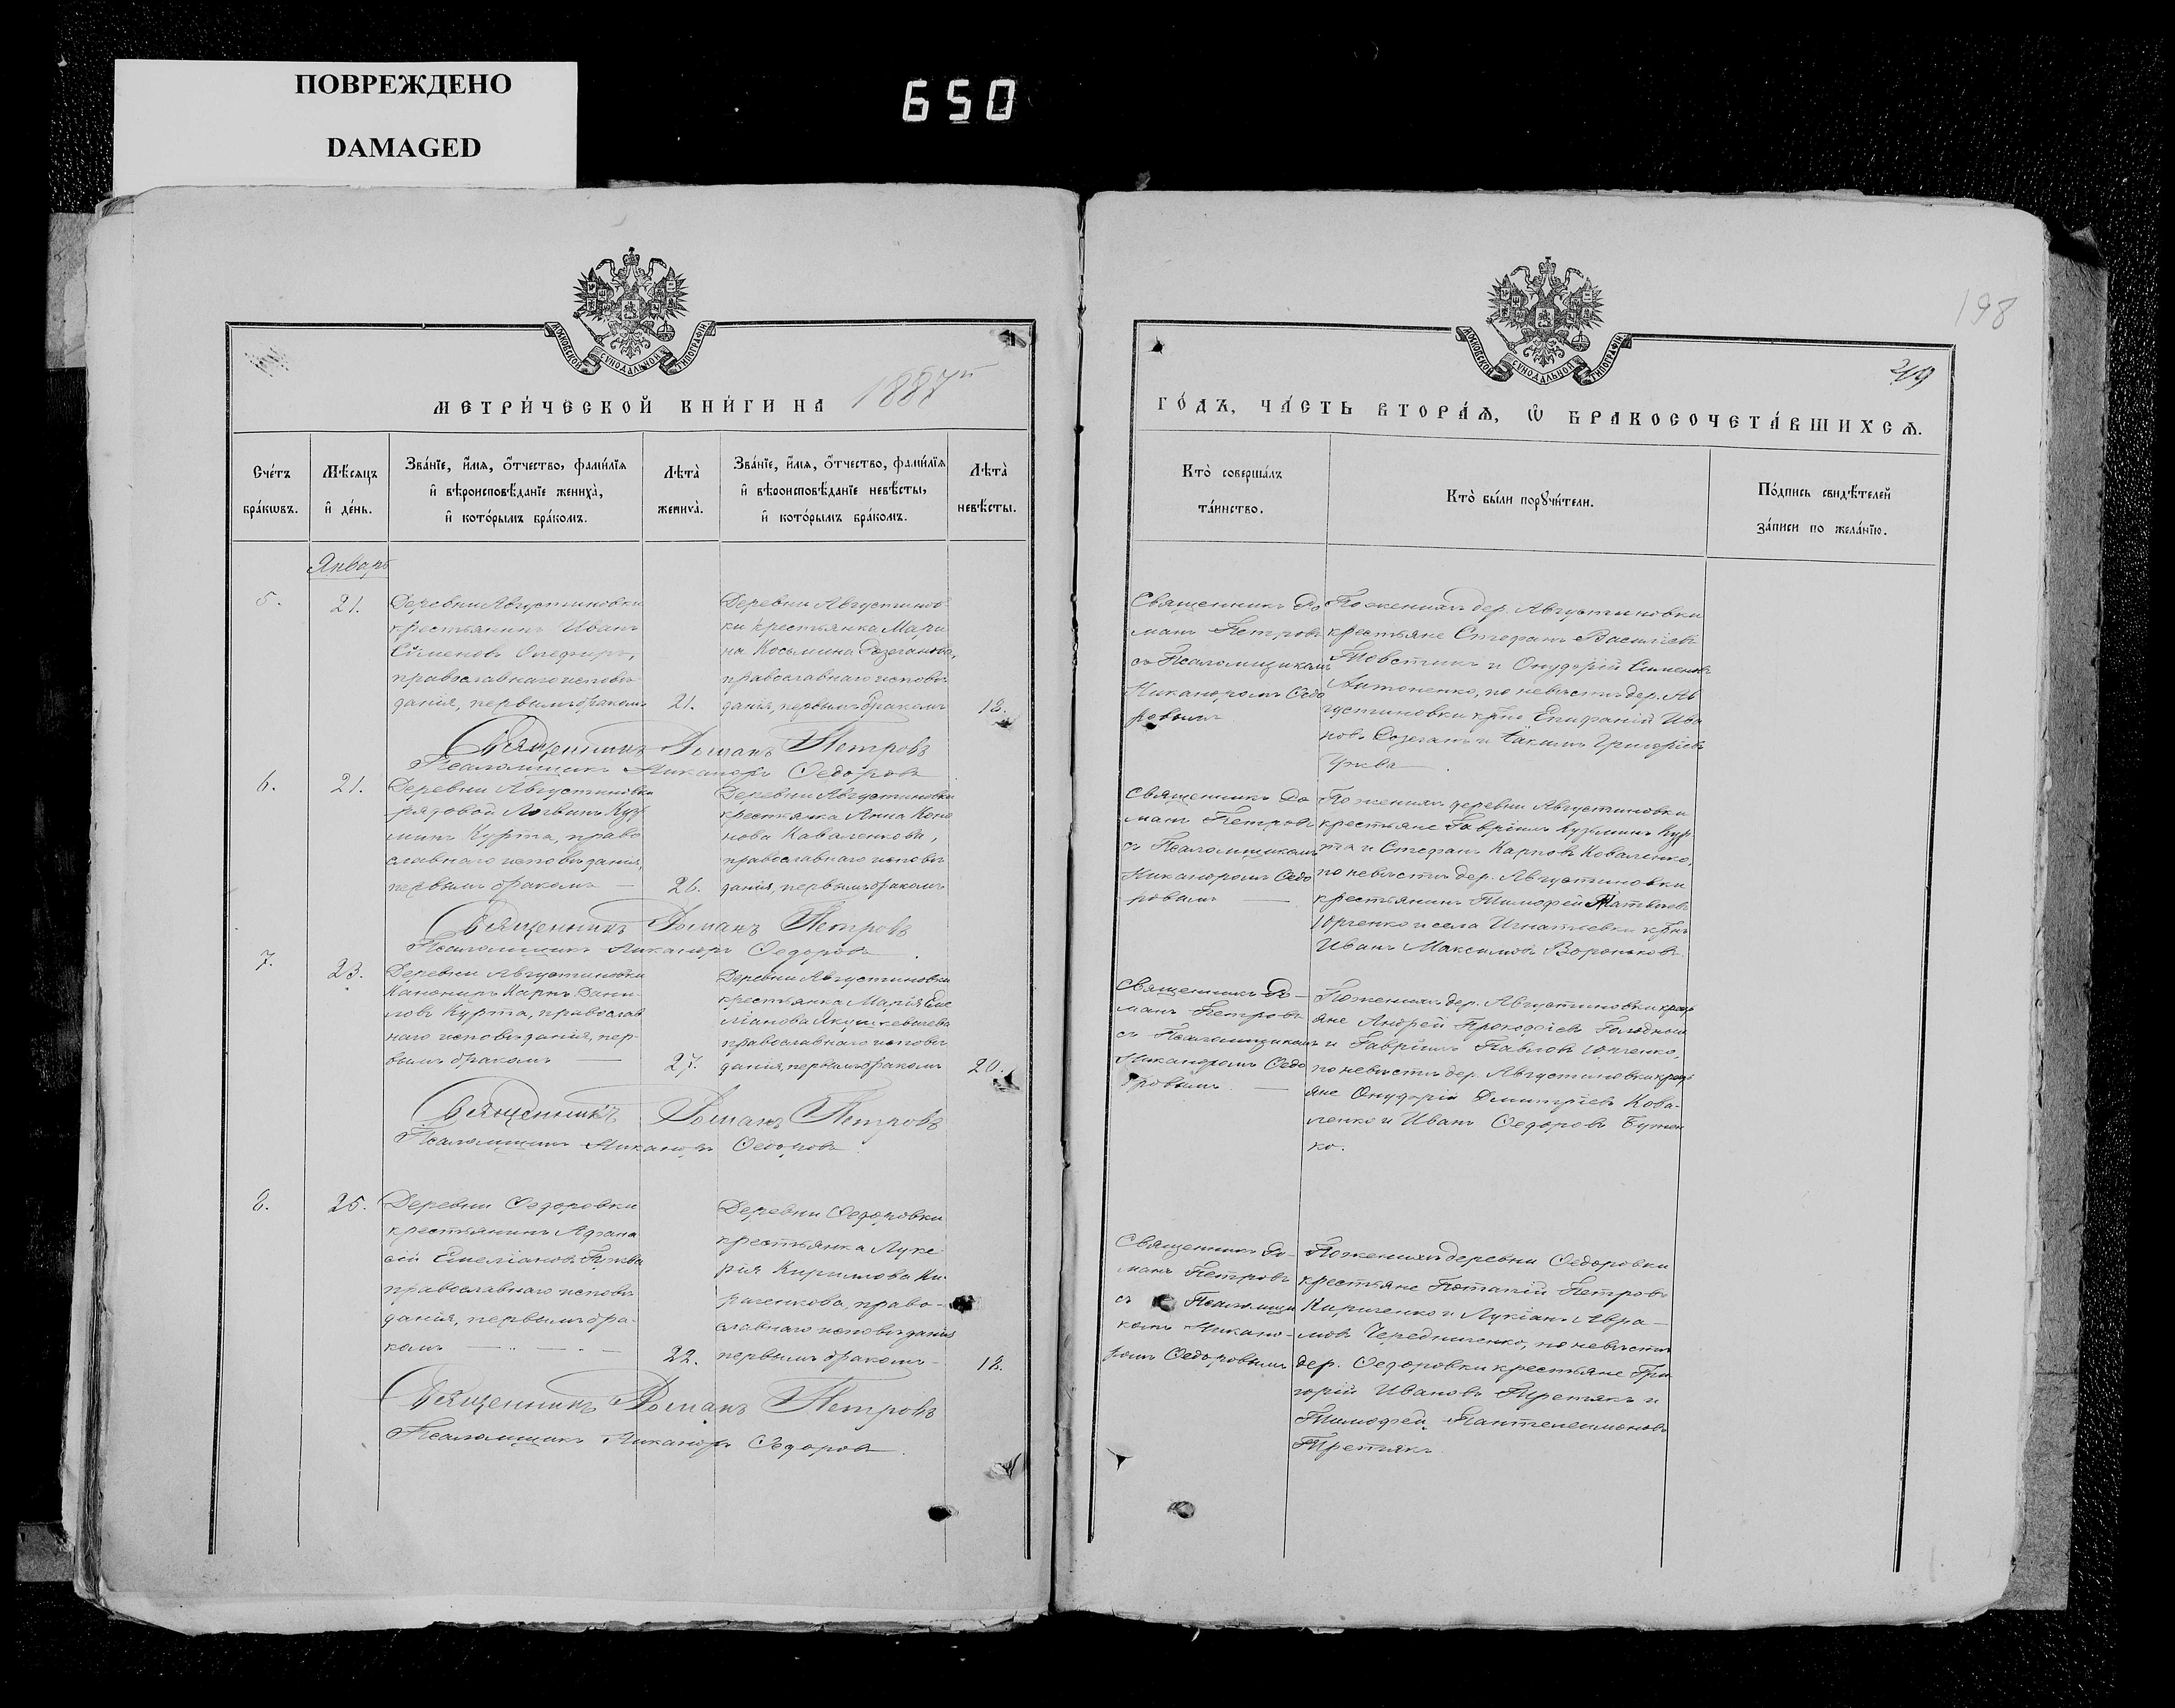 ПОВРЕЖДЕНО
DAMAGED
650
МОСКОВСКОЙ СУНОДАЛЬНОЙ ТИПОГРАФІИ
МЕТРИ́ЧЕСКОЙ КНИ́ГИ НА 1887й
Сче́тъ бра́кѡвъ.
Мѣ́сяцъ и҆ де́нь.
Зва́нїе, и҆́мѧ, ѻ҆́тчество, фами́лїѧ
и҆ вѣроисповѣ́данїе жениха̀,
и҆ кото́рымъ бра́комъ.
Лѣта̀ жениха̀.
Зва́нїе, и҆́мѧ, ѻ҆́тчество, фами́лїѧ
и҆ вѣроисповѣ́данїе невѣ́сты,
и҆ кото́рымъ бра́комъ.
Лѣта̀ невѣ́сты.
Январь
5.
21.
Деревни Августиновки
крестьянинъ Иванъ
Сѵменовъ
православнаго исповѣ
данія, первымъ бракомъ
21.
Деревни Августинов
ки крестьянка Мари
на Косьмина Созеганова,
православнаго исповѣ
данія, первымъ бракомъ
18.
Священникъ Романъ Петровъ
Псаломщикъ Никаноръ Ѳедоровъ
6.
21.
Деревни Августиновки
рядовой Логвинъ Куз
минъ Курта, право
славнаго исповѣданія,
первымъ бракомъ —
26.
Деревни Августиновки
крестьянка Анна Коно
нова Коваленкова,
православнаго исповѣ
данія, первымъ бракомъ
Священникъ Романъ Петровъ
Псаломщикъ Никаноръ Ѳедоровъ.
7.
23.
Деревни Августиновки
Канониръ Карпъ Дани-
ловъ Курта, православ
наго исповѣданія, пер-
вымъ бракомъ —
27.
Деревни Августиновки
крестьянка Марія Еме
ліанова Якушкевичева
православнаго исповѣ
данія, первымъ бракомъ
20.
Священникъ Романъ Петровъ
Псаломщикъ Никаноръ Ѳедоровъ.
8.
25.
Деревни Ѳедоровки
крестьянинъ Аѳана
сій Емеліановъ Пужва
православнаго исповѣ
данія, первымъ бра-
комъ —
22.
Деревни Ѳедоровки
крестьянка Луке
рія Кирилова Ки-
риченкова, право-
славнаго исповѣданія
первымъ бракомъ —
18.
Священникъ Романъ Петровъ
Псаломщикъ Никаноръ Ѳедоровъ.
198
МОСКОВСКОЙ СУНОДАЛЬНОЙ ТИПОГРАФІИ
ГО́ДЪ, ЧА́СТЬ ВТОРА́Ѧ, Ѽ БРАКОСОЧЕТА́ВШИХСѦ.
Кто̀ соверша́лъ та́инство.
Кто̀ бы́ли порꙋчи́тели.
По́дпись свидѣ́телей
за́писи по жела́нїю.
Священникъ Ро
манъ Петровъ
съ Псаломщикомъ
Никаноромъ Ѳедо
ровымъ
По женихѣ дер. Августиновки
крестьяне Стефанъ Василіевъ
Товстикъ и Онуфрій Симеоновъ
Антоненко, по невѣстѣ дер. Ав
густиновки кр-не Епифаній Ива
новъ Созеганъ и Іакимъ Григоріевъ
Священникъ Ро
манъ Петровъ
съ Псаломщикомъ
Никаноромъ Ѳедо
ровымъ —
По женихѣ деревни Августиновки
крестьяне Гавріилъ Кузьминъ Кур
та и Стефанъ Карповъ Коваленко,
по невѣстѣ дер. Августиновки
крестьянинъ Тимофей Матвѣевъ
Юрченко и села Игнатьевки кр-нъ
Иванъ Максимовъ Вороньковъ.
Священникъ Ро-
манъ Петровъ
съ Псаломщикомъ
Никаноромъ Ѳедо
ровымъ. —
По женихѣ дер. Августиновки кресть
яне Андрей Прокофіевъ Голодный
и Гавріилъ Павловъ Юрченко,
по невѣстѣ дер. Августиновки кресть
яне Онуфрій Дмитріевъ Кова-
ленко и Иванъ Ѳедоровъ Бутен
ко.
Священникъ Ро-
манъ Петровъ
съ Псаломщи
комъ Никано-
ромъ Ѳедоровымъ
По женихѣ деревни Ѳедоровки
крестьяне Потапій Петровъ
Кириченко и Лукіанъ Авра-
мовъ Чередниченко, по невѣстѣ
дер. Ѳедоровки крестьяне Гри
горій Ивановъ Третьякъ и
Тимофей Пантелеимоновъ
Третьякъ.